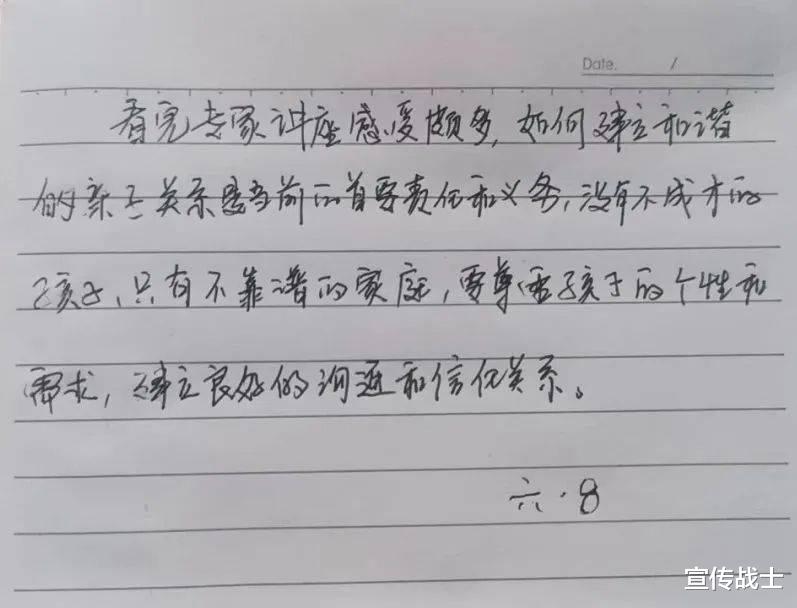 Date. /
看完专家讲座感受颇多，如何建立和谐
的亲子关系是当前的首要责任和义务，没有不成才的
孩子，只有不靠谱的家庭，要尊重孩子的个性和
需求，建立良好的沟通和信任关系。
六·8
宣传战士